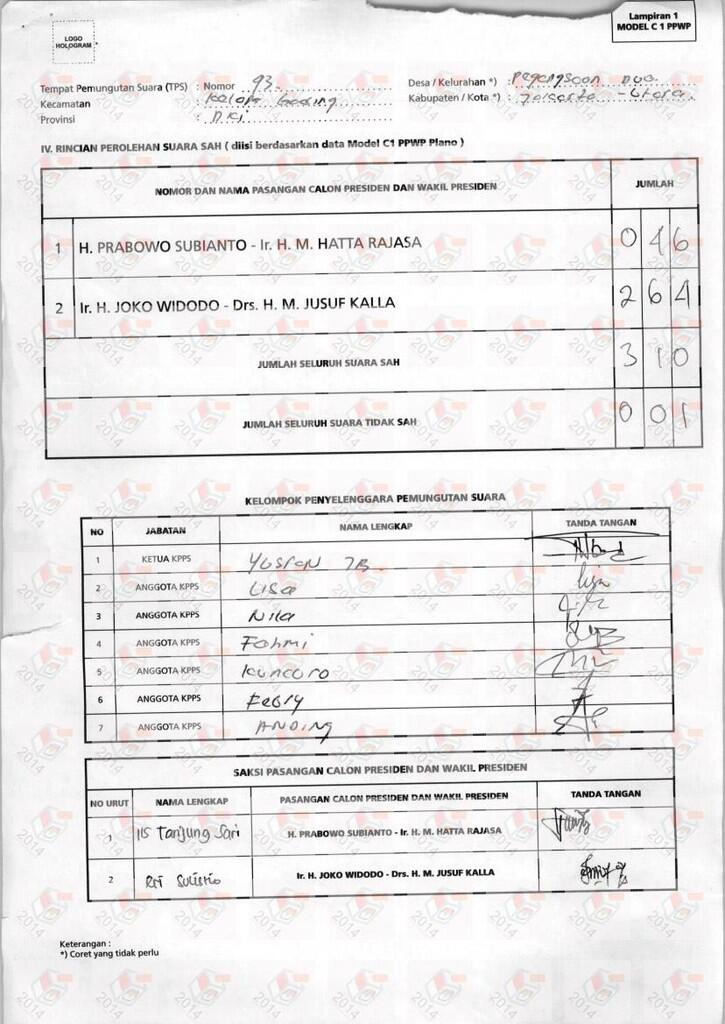 Lampiran 1
MODEL C 1 PPWP
LOGO
HOLOGRAM
Tempat Pemungutan Suara (TPS) : Nomor : 93
Desa / Kelurahan *) : Pegangsaan Dua
Kecamatan : Kelapa Gading
Kabupaten / Kota *) : Jakarta - Utara
Provinsi : DKI
IV. RINCIAN PEROLEHAN SUARA SAH ( diisi berdasarkan data Model C1 PPWP Plano )
NOMOR DAN NAMA PASANGAN CALON PRESIDEN DAN WAKIL PRESIDEN JUMLAH
1 H. PRABOWO SUBIANTO - Ir. H. M. HATTA RAJASA 0 4 6
2 Ir. H. JOKO WIDODO - Drs. H. M. JUSUF KALLA 2 6 4
JUMLAH SELURUH SUARA SAH 3 1 0
JUMLAH SELURUH SUARA TIDAK SAH 0 0 1
KELOMPOK PENYELENGGARA PEMUNGUTAN SUARA
NO JABATAN NAMA LENGKAP TANDA TANGAN
1 KETUA KPPS
2 ANGGOTA KPPS Lisa
3 ANGGOTA KPPS Nila
4 ANGGOTA KPPS Fahmi
5 ANGGOTA KPPS Kuncoro
6 ANGGOTA KPPS Febry
7 ANGGOTA KPPS ANDING
SAKSI PASANGAN CALON PRESIDEN DAN WAKIL PRESIDEN
NO URUT NAMA LENGKAP PASANGAN CALON PRESIDEN DAN WAKIL PRESIDEN TANDA TANGAN
1 IIS Tanjung Sari H. PRABOWO SUBIANTO - Ir. H. M. HATTA RAJASA
2 Sulistio Ir. H. JOKO WIDODO - Drs. H. M. JUSUF KALLA
Keterangan :
*) Coret yang tidak perlu